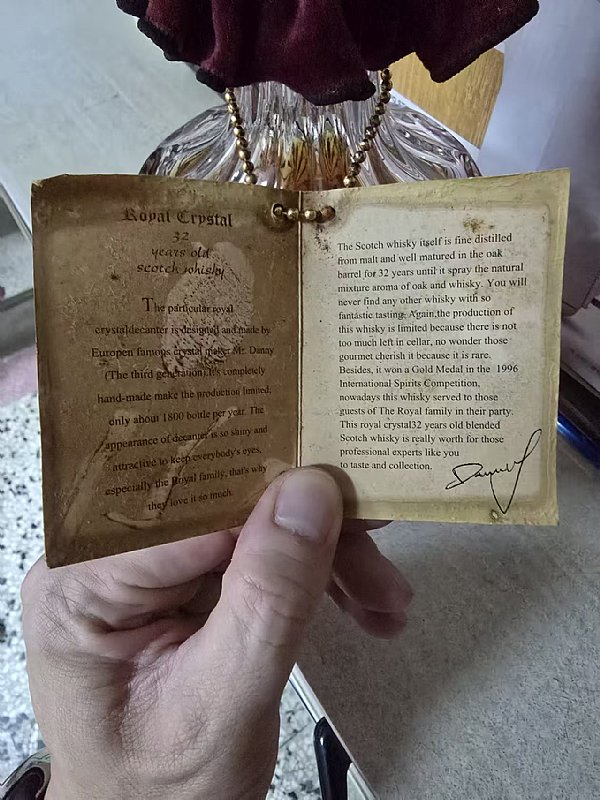 Royal Crystal
32
years old
scotch whisky
The particular royal
crystaldecanter is designed and made by
Europen famous crystal maker Mr. Danny
(The third generation).It's completely
hand-made make the production limited,
only about 1800 bottle per year. The
appearance of decanter is so shiny and
attractive to keep everybody's eyes,
especially the Royal family, that's why
they love it so much.
The Scotch whisky itself is fine distilled
from malt and well matured in the oak
barrel for 32 years until it spray the natural
mixture aroma of oak and whisky. You will
never find any other whisky with so
fantastic tasting. Again,the production of
this whisky is limited because there is not
too much left in cellar, no wonder those
gourmet cherish it because it is rare.
Besides, it won a Gold Medal in the 1996
International Spirits Competition,
nowadays this whisky served to those
guests of The Royal family in their party.
This royal crystal32 years old blended
Scotch whisky is really worth for those
professional experts like you
to taste and collection.